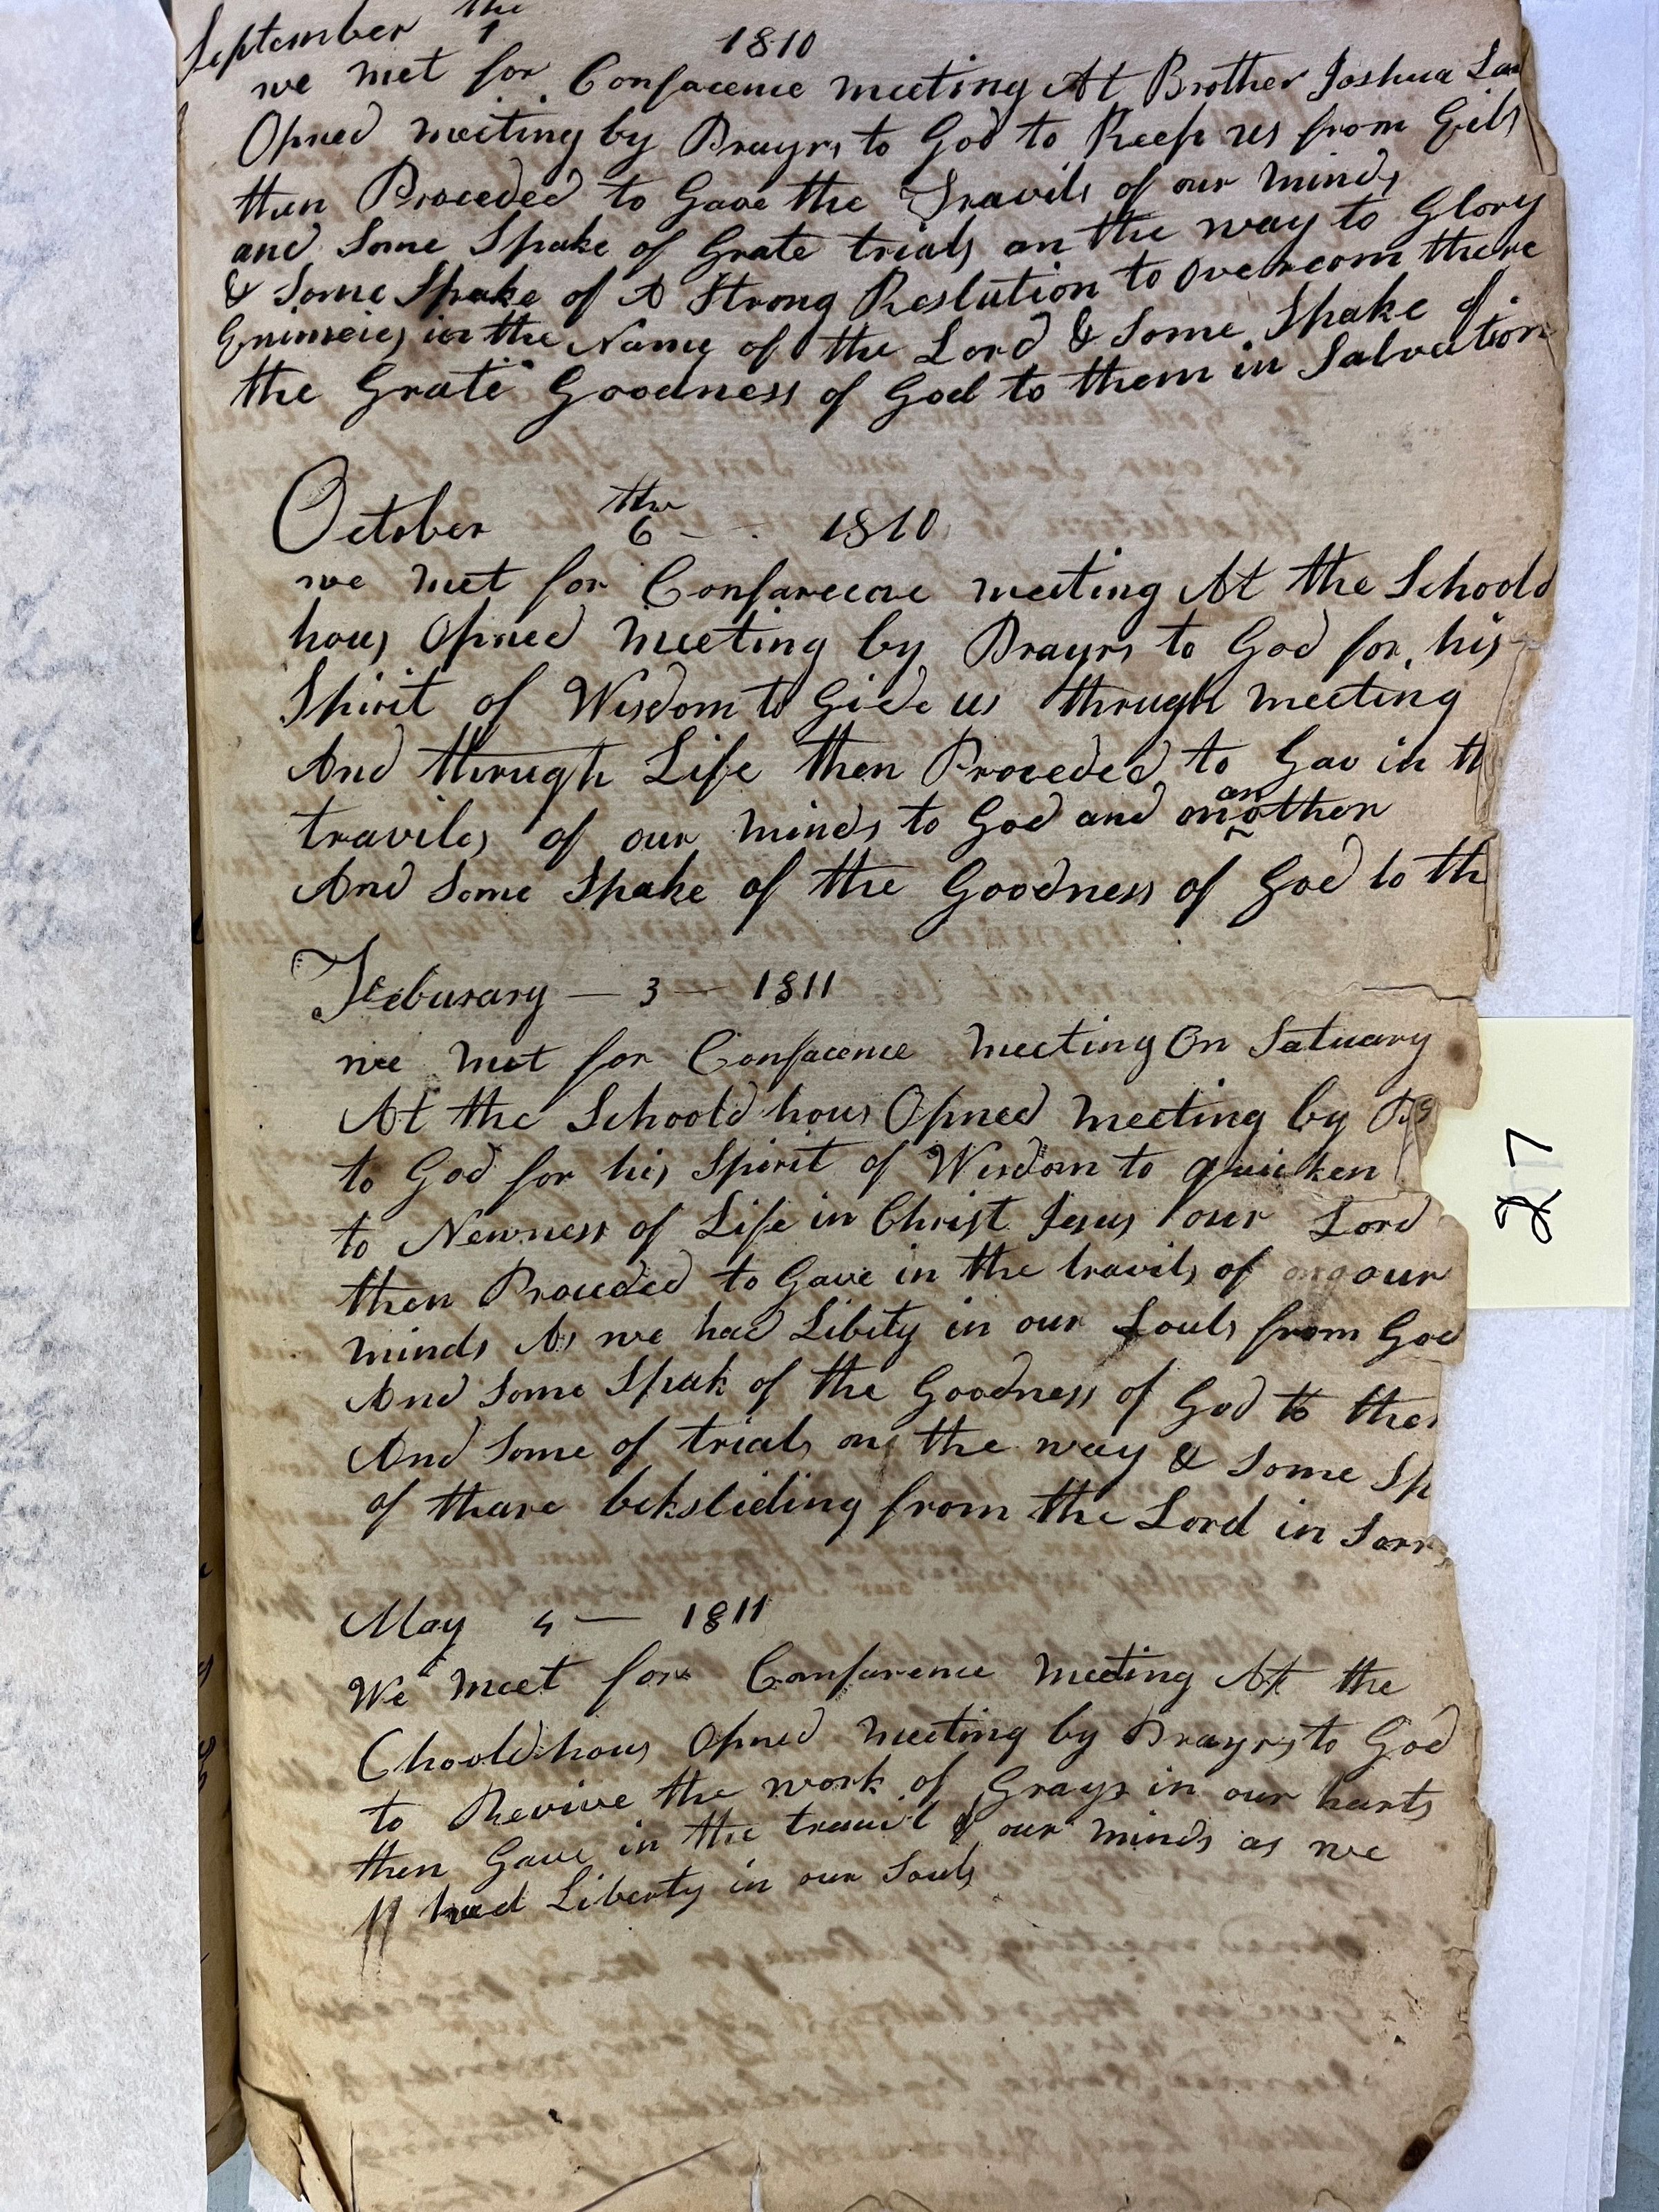 September the 1 1810
we met for Confacence meeting At Brother Joshua
Opned meeting by Prayrs to God to Keep us from
then Proceded to Gave the Travils of our minds
and Some Spake of Grate trials on the way to Glory
& Some Spake of A Strong Reslution to overcom there
Enimeies in the Name of the Lord & Some Spake of
the Grate Goodness of God to them in Salvation
October the 6 - 1810
we met for Confarecne meeting At the Schoold
hous Opned meeting by Prayrs to God for his
Spirit of Wisdom to Gide us through meeting
And through Life then Proceded to Gav in th
traviles of our minds to God and onanother
And Some Spake of the Goodness of God to th
Feburary - 3 - 1811
we met for Confacence meeting On Satuary
At the Schoold hous Opned meeting by
to God for his Spirit of Wisdom to quicken
to Newness of Life in Christ Jesus our Lord
then Proceded to Gave in the travils of our
minds As we had Libity in our Souls from God
And Some Speak of the Goodness of God to them
And Some of trials on the way & Some Sp
of thare beksliding from the Lord in Sorr
May 4 - 1811
We meet for Confarence meeting At the
Choold hous Opned meeting by Prayrs to God
to Revive the work of Grays in our harts
then Gave in the travil of our minds as we
had Liberty in our Souls
217